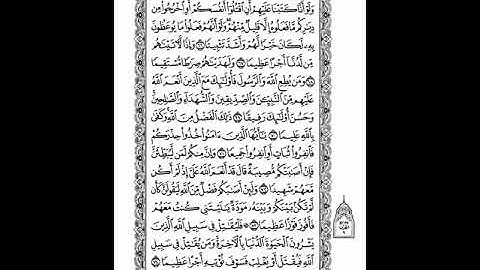 وَلَوْ أَنَّا كَتَبْنَا عَلَيْهِمْ أَنِ ٱقْتُلُوٓا۟ أَنفُسَكُمْ أَوِ ٱخْرُجُوا۟ مِن
دِيَٰرِكُم مَّا فَعَلُوهُ إِلَّا قَلِيلٌ مِّنْهُمْ وَلَوْ أَنَّهُمْ فَعَلُوا۟ مَا يُوعَظُونَ
بِهِۦ لَكَانَ خَيْرًا لَّهُمْ وَأَشَدَّ تَثْبِيتًا ٦٦ وَإِذًا لَّءَاتَيْنَٰهُم
مِّن لَّدُنَّآ أَجْرًا عَظِيمًا ٦٧ وَلَهَدَيْنَٰهُمْ صِرَٰطًا مُّسْتَقِيمًا
٦٨ وَمَن يُطِعِ ٱللَّهَ وَٱلرَّسُولَ فَأُو۟لَٰٓئِكَ مَعَ ٱلَّذِينَ أَنْعَمَ ٱللَّهُ
عَلَيْهِم مِّنَ ٱلنَّبِيِّـۧنَ وَٱلصِّدِّيقِينَ وَٱلشُّهَدَآءِ وَٱلصَّٰلِحِينَ
وَحَسُنَ أُو۟لَٰٓئِكَ رَفِيقًا ٦٩ ذَٰلِكَ ٱلْفَضْلُ مِنَ ٱللَّهِ وَكَفَىٰ
بِٱللَّهِ عَلِيمًا ٧٠ يَٰٓأَيُّهَا ٱلَّذِينَ ءَامَنُوا۟ خُذُوا۟ حِذْرَكُمْ
فَٱنفِرُوا۟ ثُبَاتٍ أَوِ ٱنفِرُوا۟ جَمِيعًا ٧١ وَإِنَّ مِنكُمْ لَمَن لَّيُبَطِّئَنَّ
فَإِنْ أَصَٰبَتْكُم مُّصِيبَةٌ قَالَ قَدْ أَنْعَمَ ٱللَّهُ عَلَىَّ إِذْ لَمْ أَكُن
مَّعَهُمْ شَهِيدًا ٧٢ وَلَئِنْ أَصَٰبَكُمْ فَضْلٌ مِّنَ ٱللَّهِ لَيَقُولَنَّ كَأَن
لَّمْ تَكُنۢ بَيْنَكُمْ وَبَيْنَهُۥ مَوَدَّةٌ يَٰلَيْتَنِى كُنتُ مَعَهُمْ
فَأَفُوزَ فَوْزًا عَظِيمًا ٧٣ فَلْيُقَٰتِلْ فِى سَبِيلِ ٱللَّهِ ٱلَّذِينَ
يَشْرُونَ ٱلْحَيَوٰةَ ٱلدُّنْيَا بِٱلْءَاخِرَةِ وَمَن يُقَٰتِلْ فِى سَبِيلِ
ٱللَّهِ فَيُقْتَلْ أَوْ يَغْلِبْ فَسَوْفَ نُؤْتِيهِ أَجْرًا عَظِيمًا ٧٤